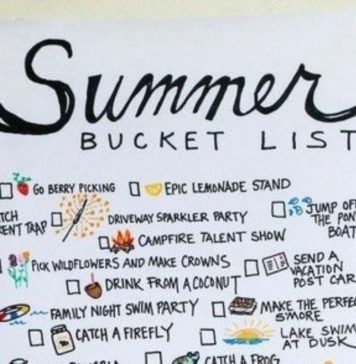 Summer
BUCKET LIST
GO BERRY PICKING EPIC LEMONADE STAND
DRIVEWAY SPARKLER PARTY JUMP OFF
TRAP THE PON
BOAT
CAMPFIRE TALENT SHOW
PICK WILDFLOWERS AND MAKE CROWNS SEND A
VACATION
POST CAR
DRINK FROM A COCONUT
FAMILY NIGHT SWIM PARTY MAKE THE PERFEC
S'MORE
CATCH A FIREFLY LAKE SWIM
AT DUSK
CATCH A FROG